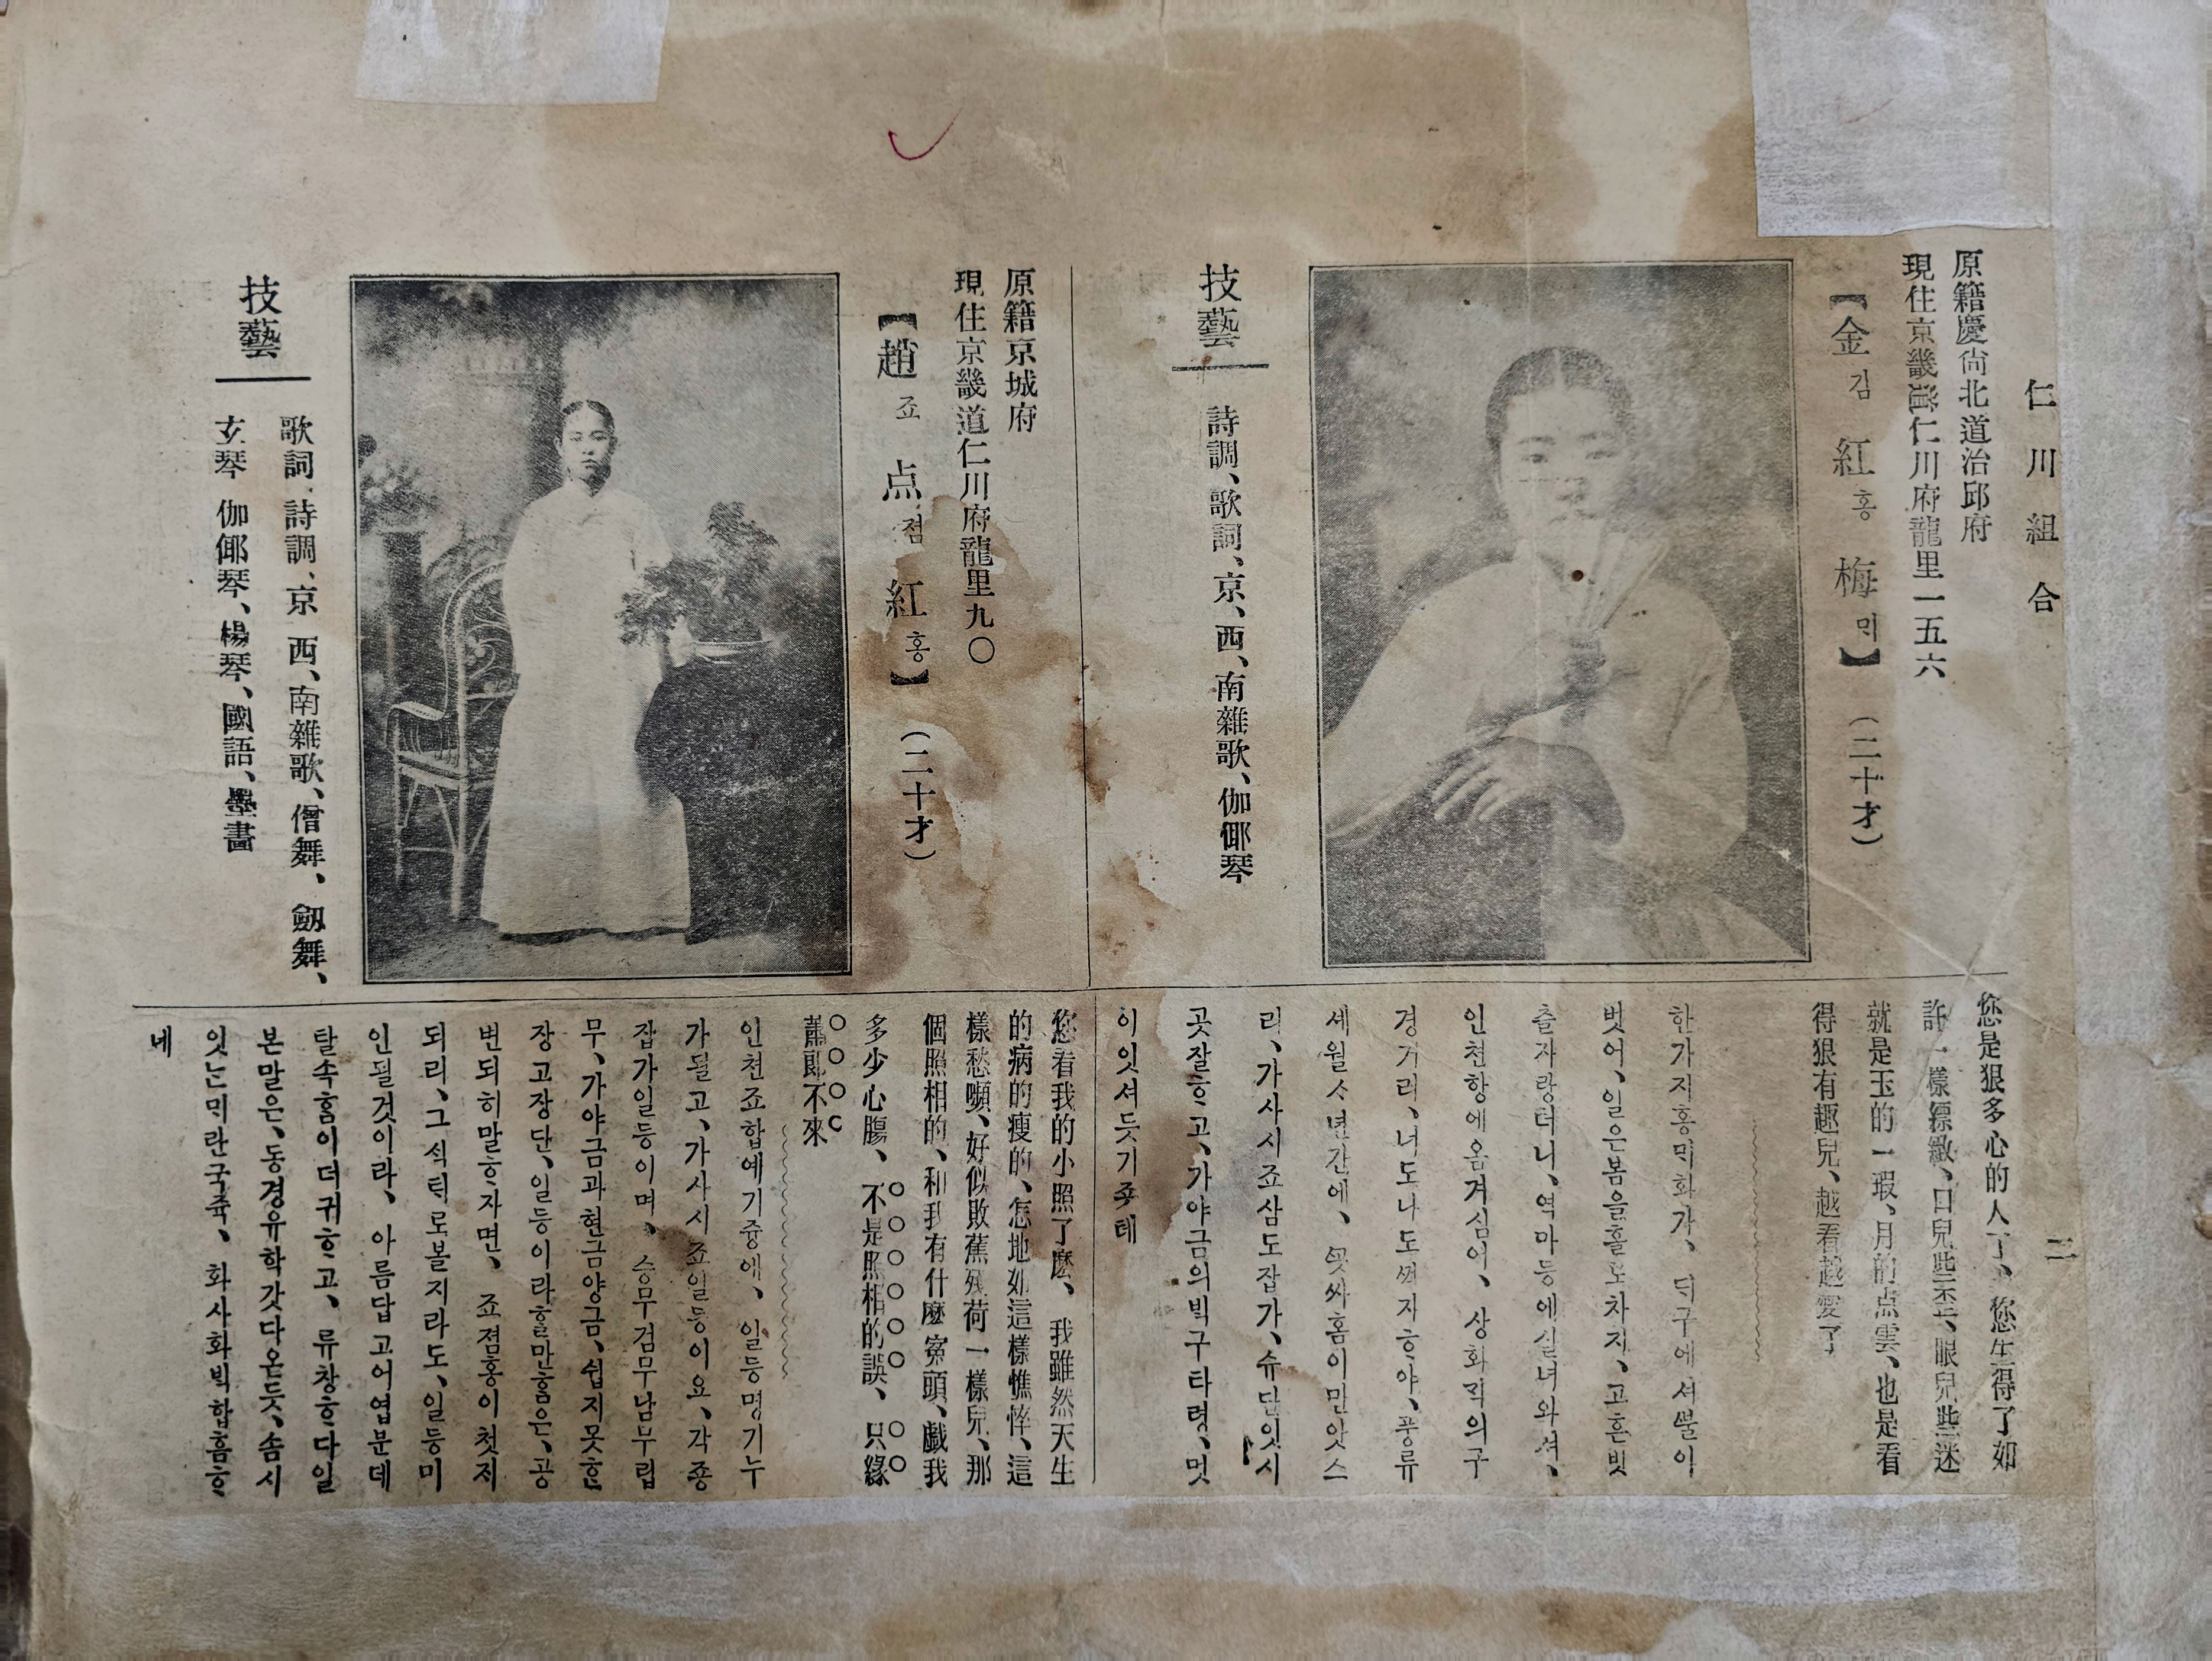 仁川組合
二
原籍慶尙北道治邱府
現住京畿道仁川府龍里一五六
【金김紅홍梅믜】(二十才)
技藝
詩調、歌詞、京、西、南雜歌、伽倻琴
您是狠多心的人了、您生得了如
許一樣縹緻、口兒些歪、眼兒些迷
就是玉的一瑕、月的点雲、也是看
得狠有趣兒、越看越愛了
한가지홍믜화가、디구에셔뿔이
벗어、일은봄을홀노차지、고흔빗
츨자랑터니、역마등에실녀와셔、
인천항에옴겨심어、상화긱의구
경거리、너도나도꺽자ᄒᆞ야、풍류
세월ᄉ년간에、싸홈이만앗스
리、가사시죠삼도잡가、슈단잇시
곳잘ᄒᆞ고、가야금의빅구타령、멋
이잇셔듯기죳테
原籍京城府
現住京畿道仁川府龍里九〇
【趙죠点점紅홍】(二十才)
技藝
歌詞、詩調、京 西、南雜歌、僧舞、劒舞、
玄琴 伽倻琴、楊琴、國語、墨畵
您看我的小照了麽、我雖然天生
的病的瘦的、怎地如這樣憔悴、這
樣愁嚬、好似敗蕉殘荷一樣兒、那
個照相的、和我有什麽寃頭、戱我
多少心膓、不是照相的誤、只緣
蕭郎不來
인천죠합예기즁에、일등명기누
가될고、가사시죠일등이요、각죵
잡가일등이며、승무검무남무립
무、가야금과현금양금、쉽지못ᄒᆞᆫ
장고장단、일등이라ᄒᆞᆯ만홈은、공
번되히말ᄒᆞ자면、죠졈홍이첫지
되리、그식틱로볼지라도、일등미
인될것이라、아름답고어엽분데
탈속홈이더귀ᄒᆞ고、류창ᄒᆞ다일
본말은、동경유학갓다온듯、솜시
잇는믹란국쥭、화사화빅합홈ᄒᆞ
네